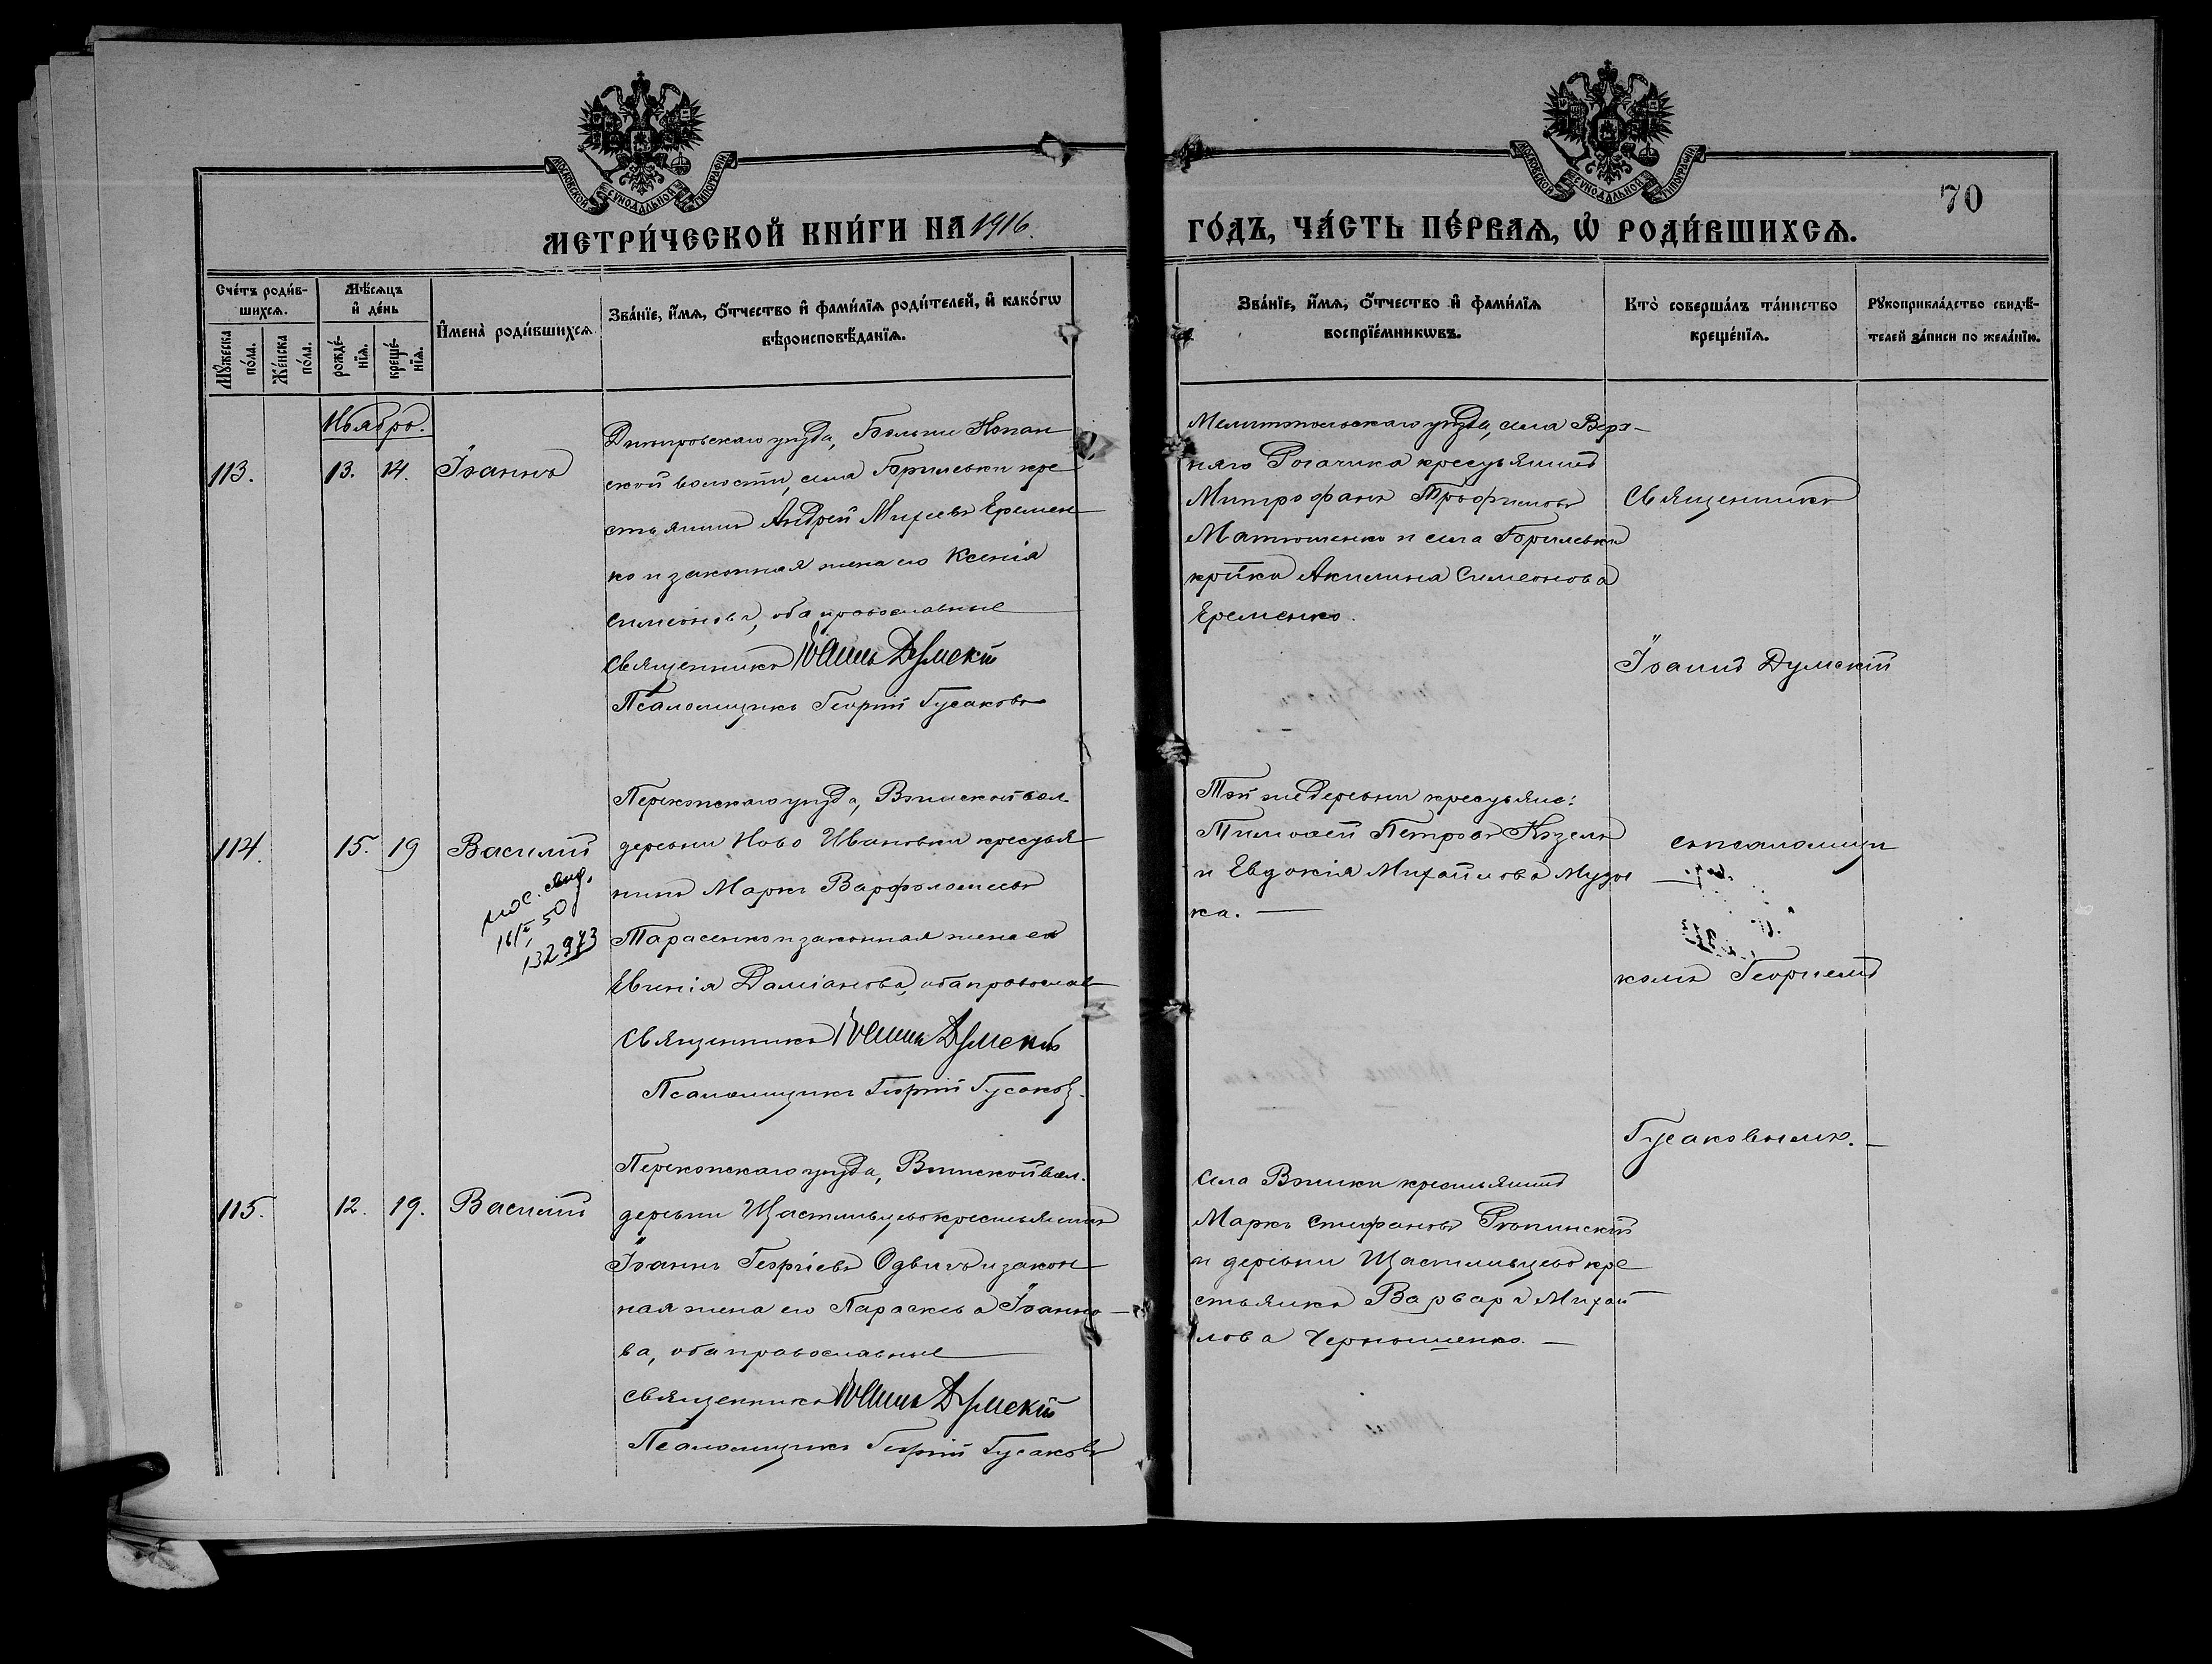 МОСКОВСКОЙ СѴНОДАЛЬНОЙ ТИПОГРАФІИ
МОСКОВСКОЙ СѴНОДАЛЬНОЙ ТИПОГРАФІИ
70
МЕТРИ́ЧЕСКОЙ КНИ́ГИ НА 1916.
ГО́ДЪ, ЧА́СТЬ ПЕ́РВАѦ, Ѡ҆ РОДИ́ВШИХСѦ.
Сче́тъ роди́в-
шихсѧ.
Мꙋ́жеска по́ла.
Же́нска по́ла.
Мѣ́сѧцъ
и҆ де́нь
рожде́-
нїѧ.
креще́-
нїѧ.
И҆мена̀ роди́вшихсѧ.
Зва́нїе, и҆́мѧ, ѻ҆́тчество и҆ фами́лїѧ роди́телей, и҆ како́гѡ
вѣроисповѣ́данїѧ.
Зва́нїе, и҆́мѧ, ѻ҆́тчество и҆ фами́лїѧ
воспрїе́мникѡвъ.
Кто̀ соверша́лъ та́инство
креще́нїѧ.
Рꙋкоприкла́дство свидѣ́-
телей за́писи по жела́нїю.
Ноябрь.
113.
13. 14.
Іоаннъ
Днѣпровскаго уѣзда, Больше Копан
ской волости, села Бриловки кре
стьянинъ Андрей Михеевъ Еремен
ко и законная жена его Ксенія
Симеонова, оба православные
Священникъ Іоаннъ Думскій
Псаломщикъ Георгій Гусаковъ
Мелитопольскаго уѣзда, села Верх-
няго Рогачика крестьянинъ
Митрофанъ Трофимовъ
Матюшенко и села Бриловки
кр-нка Акилина Симеонова
Еременко.
Священникъ
Іоаннъ Думскій
114.
15. 19
Василій
свид.
16/I 50
132973
Перекопскаго уѣзда, вол.
деревни Ново Ивановки крестья
нинъ Маркъ Варфоломеевъ
Тарасенко и законная жена его
Евгенія Даміанова, оба православ
Священникъ Іоаннъ Думскій
Псаломщикъ Георгій Гусаковъ.
Той же деревни крестьяне:
Тимофей Петровъ Козелъ
и Евдокія Михайлова Музы
ка.
съ псаломщи
комъ Георгіемъ
Гусаковымъ.
115.
12. 19.
Василій
Перекопскаго уѣзда, вол.
деревни Щастливцево крестьянинъ
Іоаннъ Георгіевъ и закон
ная жена его Параскева Іоанно
ва, оба православные
Священникъ Іоаннъ Думскій
Псаломщикъ Георгій Гусаковъ
Села крестьянинъ
Маркъ Стефановъ
и деревни Щастливцево кре
стьянка Варвара Михай
лова Чернышенко.